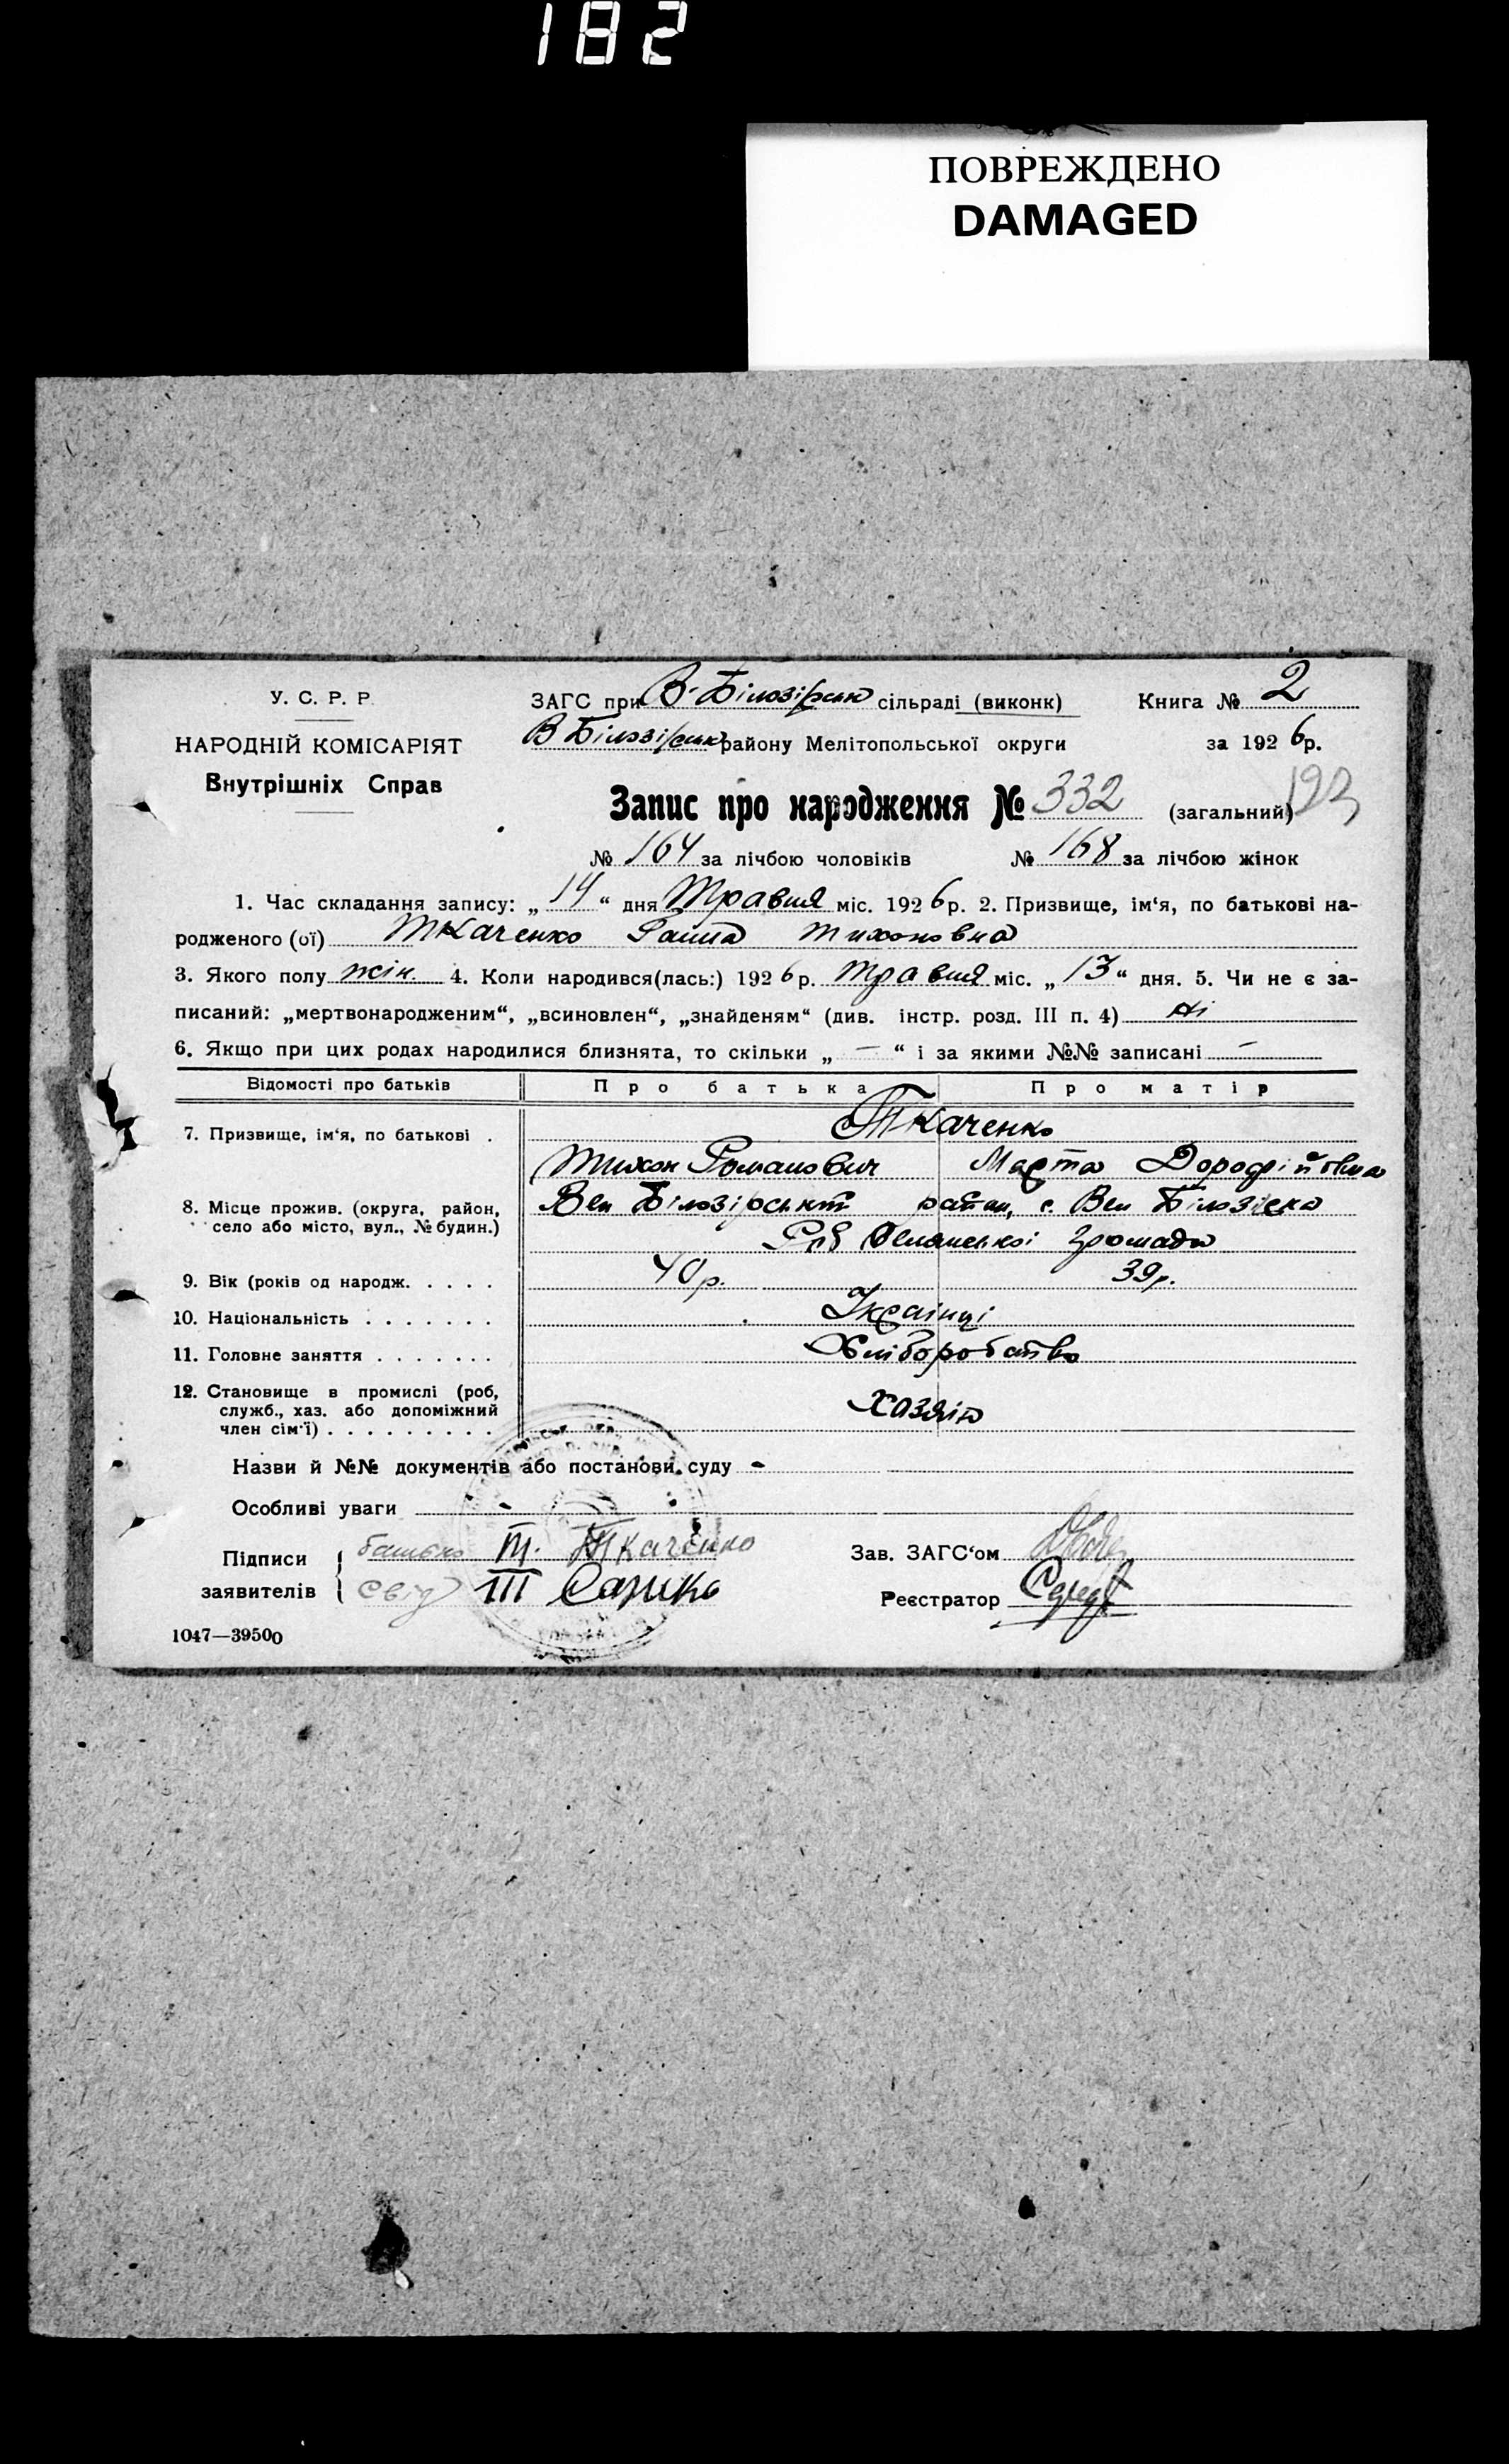 182
ПОВРЕЖДЕНО
DAMAGED
У. С. Р. Р.
НАРОДНІЙ КОМІСАРІЯТ
Внутрішніх Справ
ЗАГС при В-Білозірськ сільраді (виконк)
Книга № 2
В Білозірськ району Мелітопольської округи
за 1926 р.
Запис про народження № 332 (загальний) 193
№ 164 за лічбою чоловіків № 168 за лічбою жінок
1. Час складання запису: „14“ дня Травня міс. 1926 р. 2. Призвище, ім‘я, по батькові на-
родженого (ої) Ткаченко Раїна Тихоновна
3. Якого полу жін. 4. Коли народився(лась:) 1926 р. Травня міс. „13“ дня. 5. Чи не є за-
писаний: „мертвонародженим“, „всиновлен“, „знайденям“ (див. інстр. розд. III п. 4) ні
6. Якщо при цих родах народилися близнята, то скільки „ — “ і за якими №№ записані —
Відомості про батьків
Про батька
Про матір
7. Призвище, ім‘я, по батькові .
Ткаченко
Тихон Романович
Марта Дорофійовна
8. Місце прожив. (округа, район,
село або місто, вул., № будин.)
Вел Білозірський район, с. Вел Білозірка
громади
9. Вік (років од народж. . . . .
40 р.
39 р.
10. Національність . . . . . . .
Українці
11. Головне заняття . . . . . . .
Хліборобство
12. Становище в промислі (роб,
служб., хаз. або допоміжний
член сім‘ї) . . . . . . . . .
хазяїн
Назви й №№ документів або постанови суду -
Особливі уваги -
Підписи
заявителів
батько Т. Ткаченко
свід III
Зав. ЗАГС‘ом
Реєстратор
1047—39500